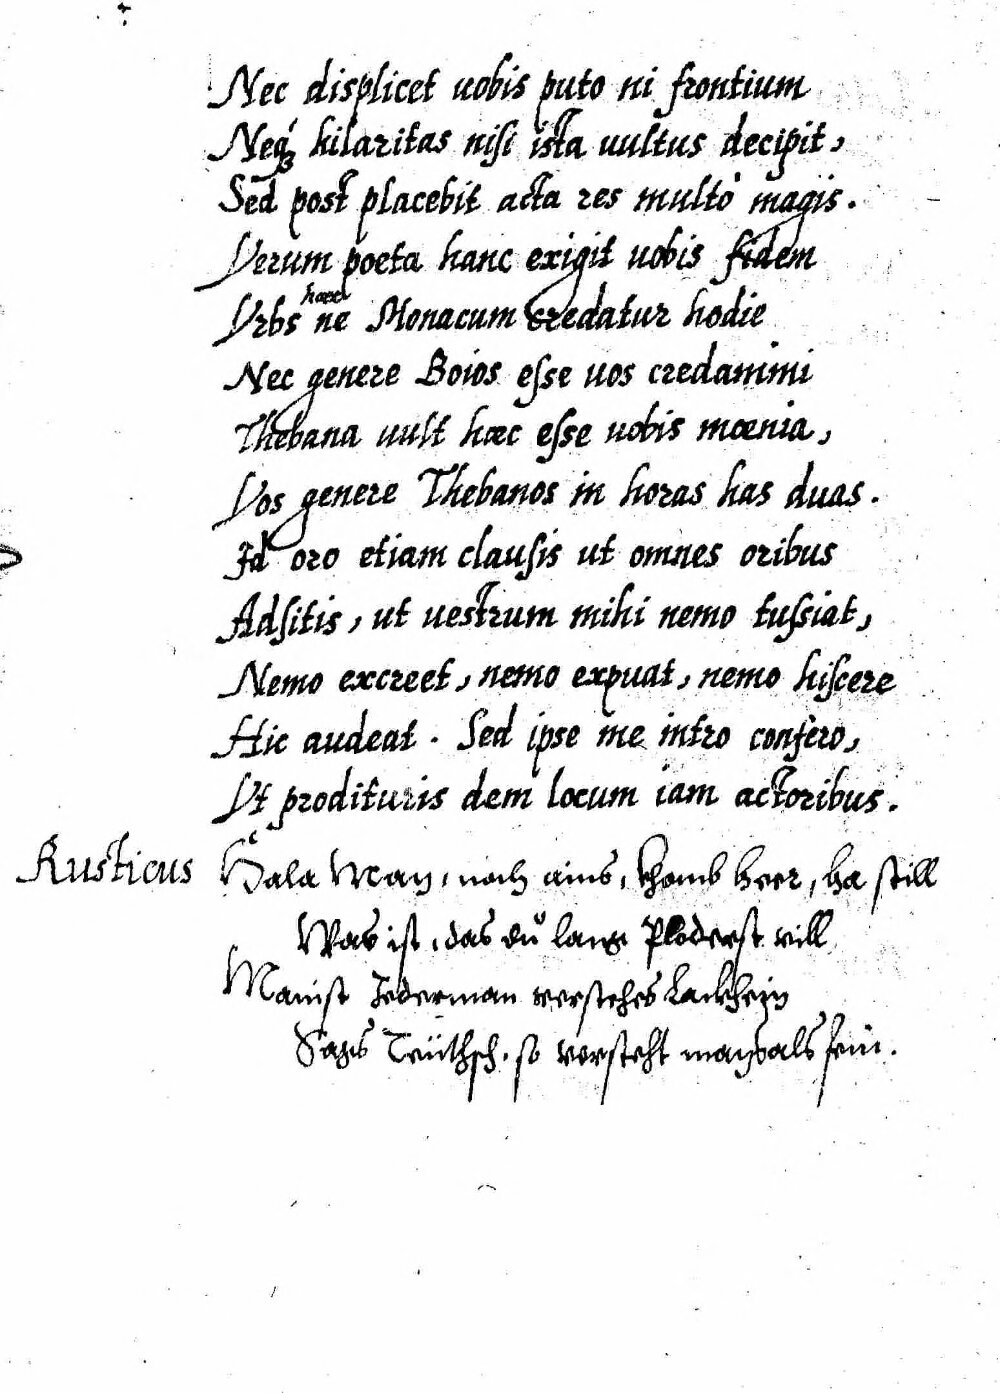 Nec displicet uobis puto ni frontium
Neq́ꝫ hilaritas nisi ista uultus decipit,
Sed post placebit acta res multò magis.
Verum poeta hanc exigit uobis fidem
Vrbs hæc ne Monacum credatur hodie
Nec genere Boios esse uos credamini
Thebana uult hæc esse uobis mœnia,
Vos genere Thebanos in horas has duas.
Id oro etiam clausis ut omnes oribus
Adsitis, ut uestrum mihi nemo tussiat,
Nemo excreet, nemo expuat, nemo hiscere
Hic audeat. Sed ipse me intro confero,
Vt prodituris dem locum iam actoribus.
Rusticus Hala Man, noch ains, khomb heer, ha still
Was ist, das dů lang Ploderst vill
Mainst Jederman verstehes Lackhein
Sags Teüthsch, so versteht mans als fein.